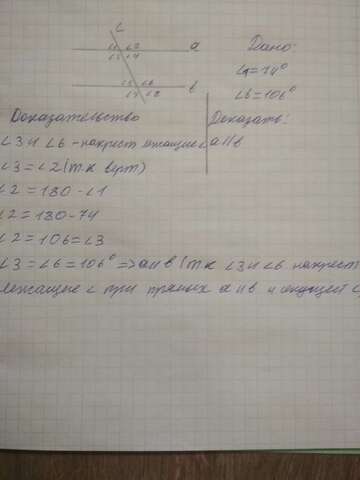 c
∠1 ∠2 a
∠3 ∠4
∠5 ∠6
∠7 ∠8 b
Дано:
∠1=74°
∠6=106°
Доказать:
a||b
Доказательство
∠3 и ∠6 - накрест лежащие ∠
∠3=∠2 (т к верт)
∠2=180-∠1
∠2=180-74
∠2=106=∠3
∠3=∠6=106° => a||b (т к ∠3 и ∠6 накрест
лежащие ∠ при прямых a||b и секущей c